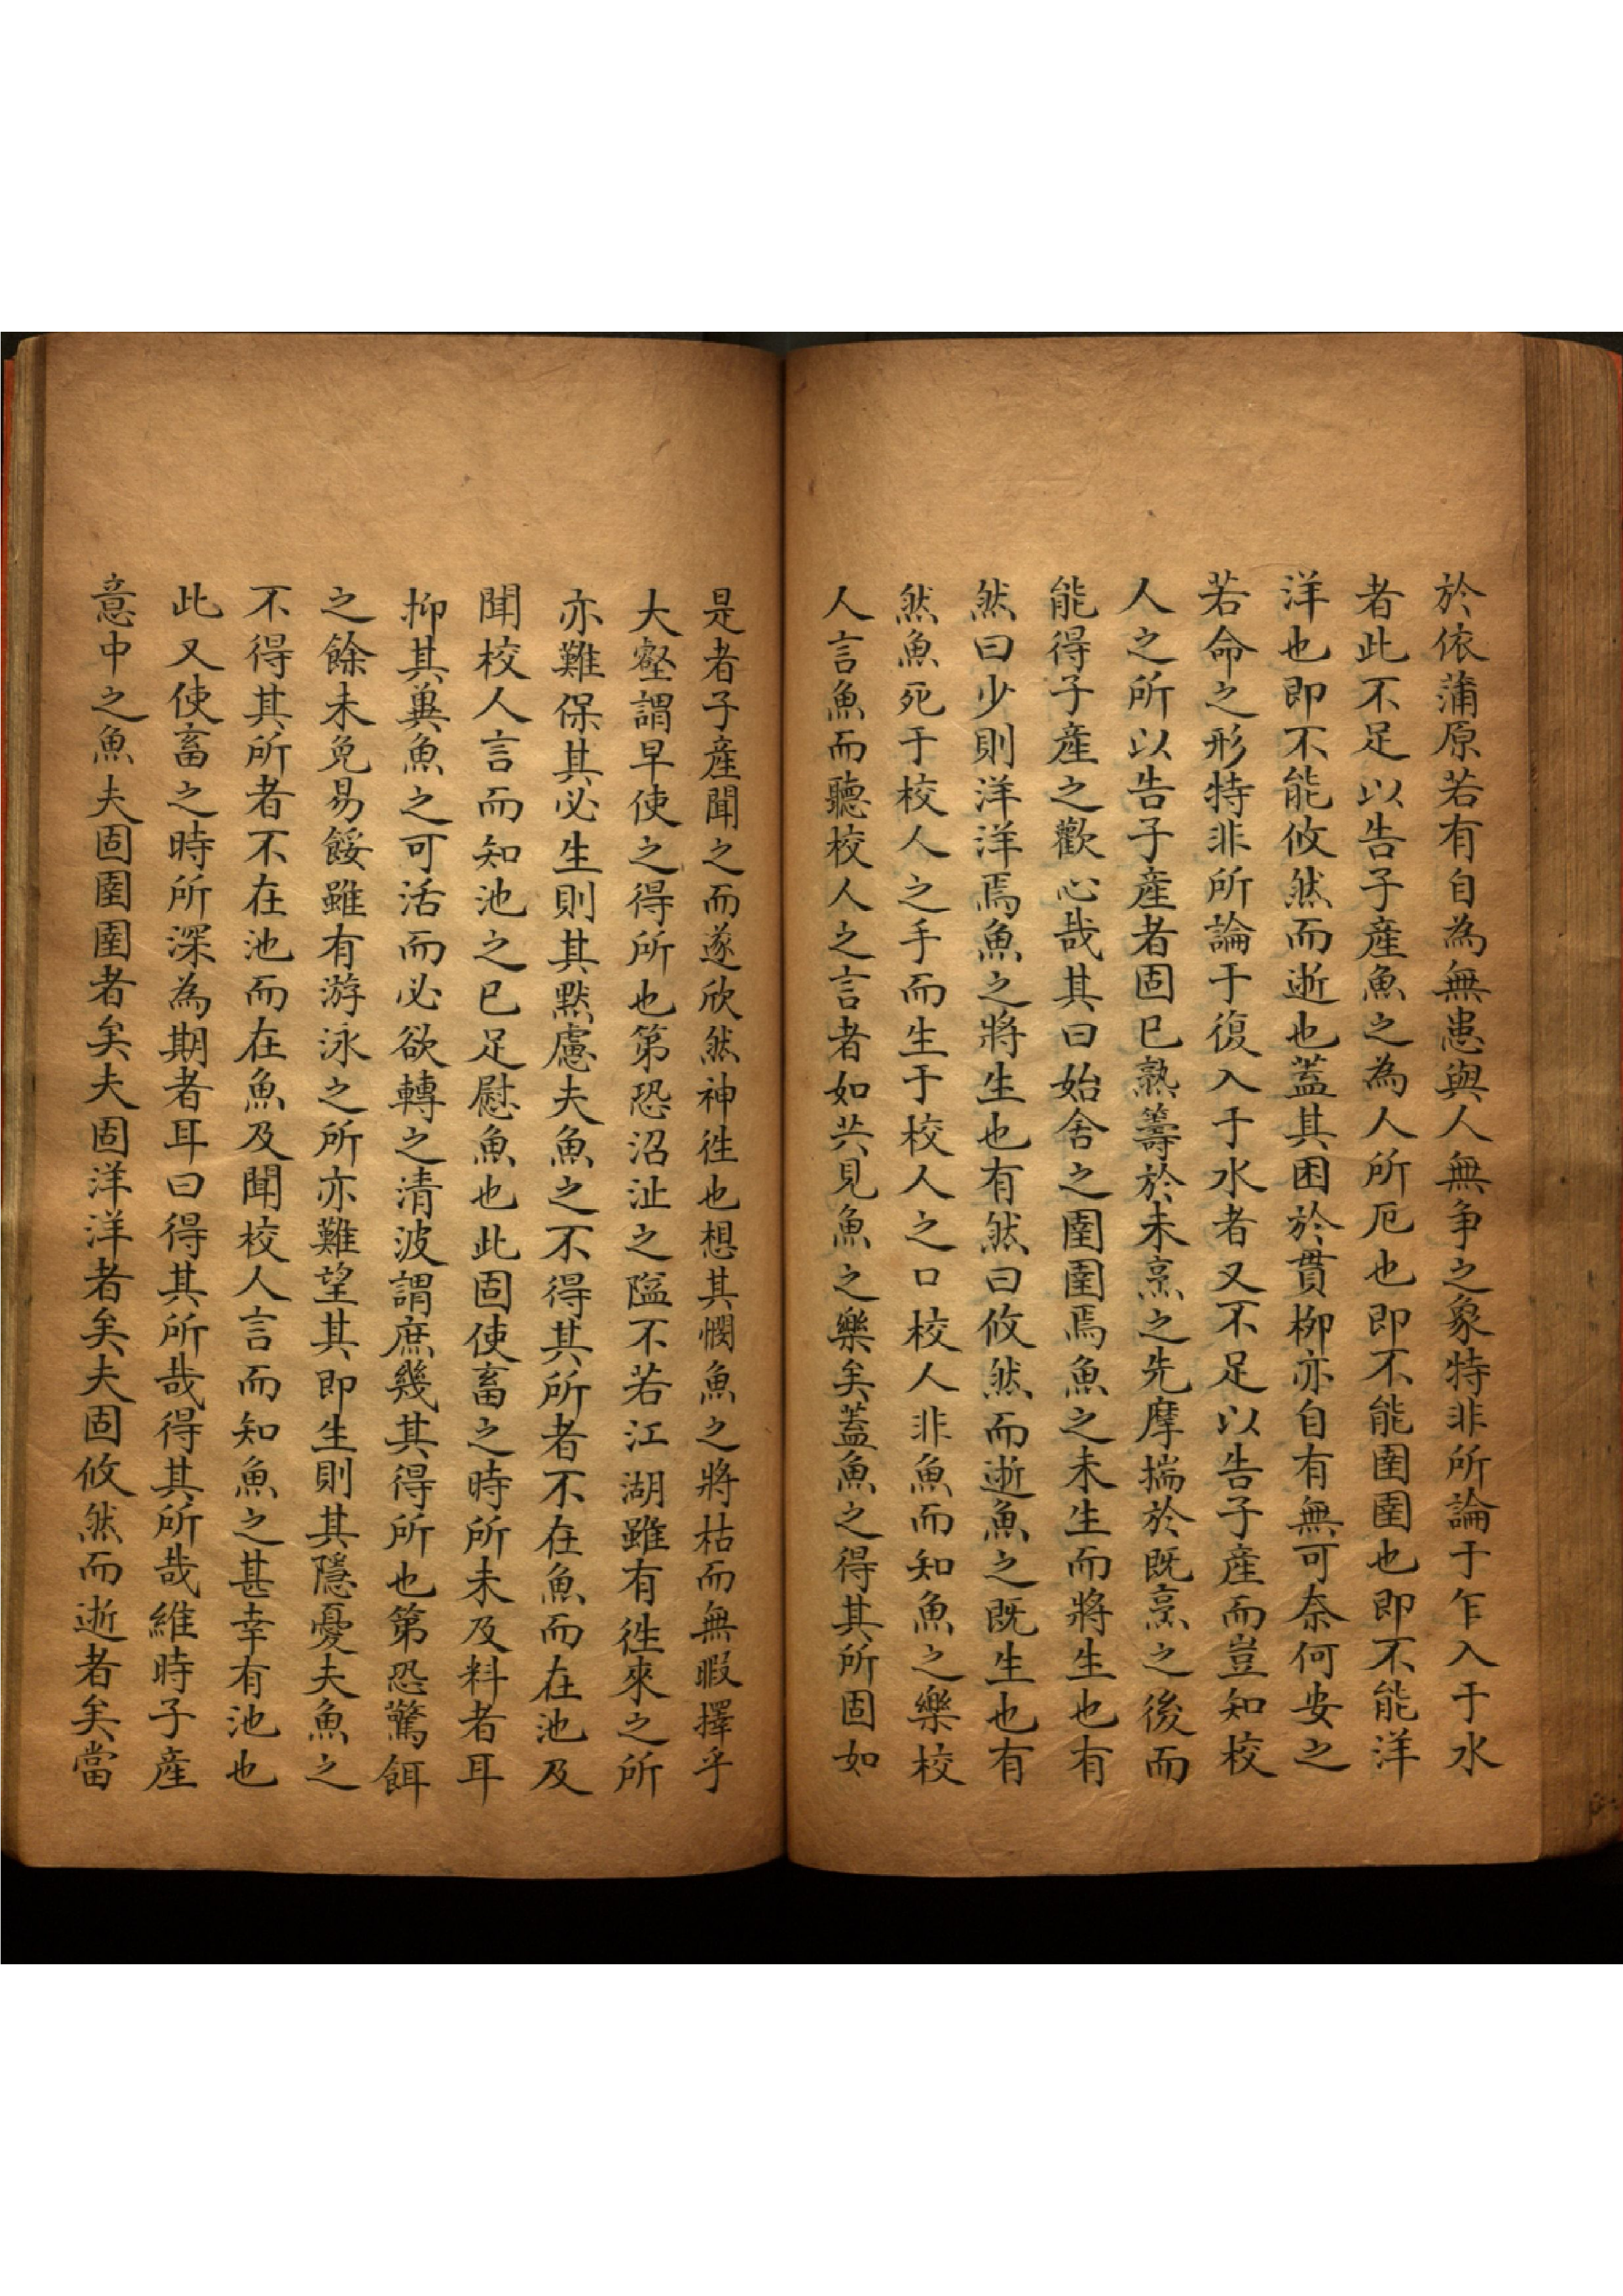 於依蒲原若有自為無患與人無争之象特非所論于乍入于水
者此不足以告子產魚之為人所厄也即不能圉圉也即不能洋
洋也即不能攸然而逝也蓋其困於貫柳亦自有無可奈何安之
若命之形特非所論于復入于水者又不足以告子產而豈知校
人之所以告子產者固已熟籌於未烹之先摩揣於既烹之後而
能得子產之歡心哉其曰始舍之圉圉焉魚之未生而將生也有
然曰少則洋洋焉魚之將生也有然曰攸然而逝魚之既生也有
然魚死于校人之手而生于校人之口校人非魚而知魚之樂校
人言魚而聽校人之言者如共見魚之樂矣蓋魚之得其所固如
是者子產聞之而遂欣然神徃也想其憫魚之將枯而無暇擇乎
大壑謂早使之得所也第恐沼沚之隘不若江湖雖有徃來之所
亦難保其必生則其默慮夫魚之不得其所者不在魚而在池及
聞校人言而知池之已足慰魚也此固使畜之時所未及料者耳
抑其冀魚之可活而必欲轉之清波謂庶幾其得所也第恐驚餌
之餘未免易餒雖有游泳之所亦難望其即生則其隱憂夫魚之
不得其所者不在池而在魚及聞校人言而知魚之甚幸有池也
此又使畜之時所深為期者耳曰得其所哉得其所哉維時子產
意中之魚夫固圉圉者矣夫固洋洋者矣夫固攸然而逝者矣當